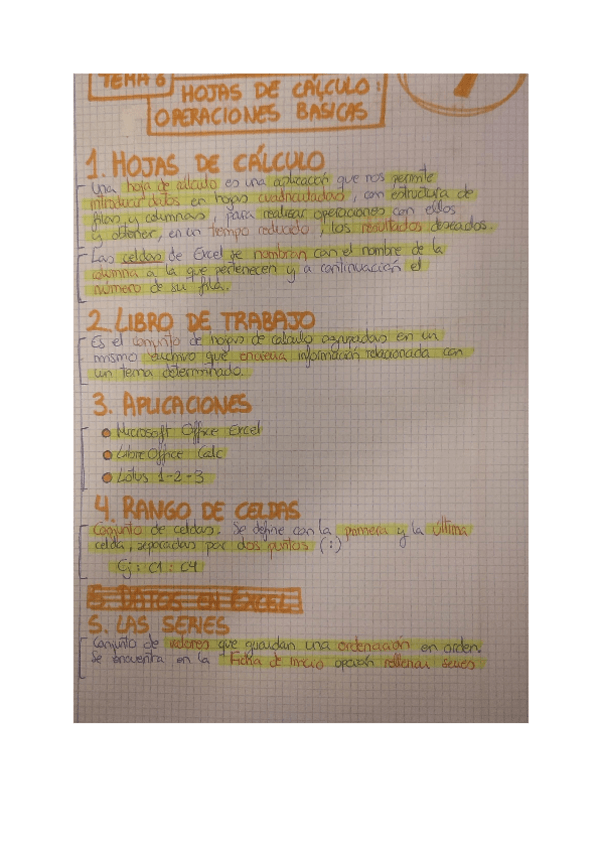 TEMA 6
HOJAS DE CÁLCULO:
OPERACIONES BASICAS
1. HOJAS DE CÁLCULO
Una hoja de cálculo es una aplicación que nos permite
introducir datos en hojas cuadriculadas, con estructura de
filas y columnas, para realizar operaciones con ellos
y obtener, en un tiempo reducido, los resultados deseados.
Las celdas de Excel se nombran con el nombre de la
columna a la que pertenecen y a continuación el
número de su fila.
2. LIBRO DE TRABAJO
Es el conjunto de hojas de cálculo agrupadas en un
mismo archivo que encierra información relacionada con
un tema determinado.
3. APLICACIONES
Microsoft Office Excel
LibreOffice Calc
Lotus 1-2-3
4. RANGO DE CELDAS
Conjunto de celdas. Se define con la primera y la última
celda, separadas por dos puntos (:)
Ej: C1:C4
5. DATOS EN EXCEL
5. LAS SERIES
Conjunto de valores que guardan una ordenación en orden.
Se encuentra en la Ficha de Inicio opción rellenar series